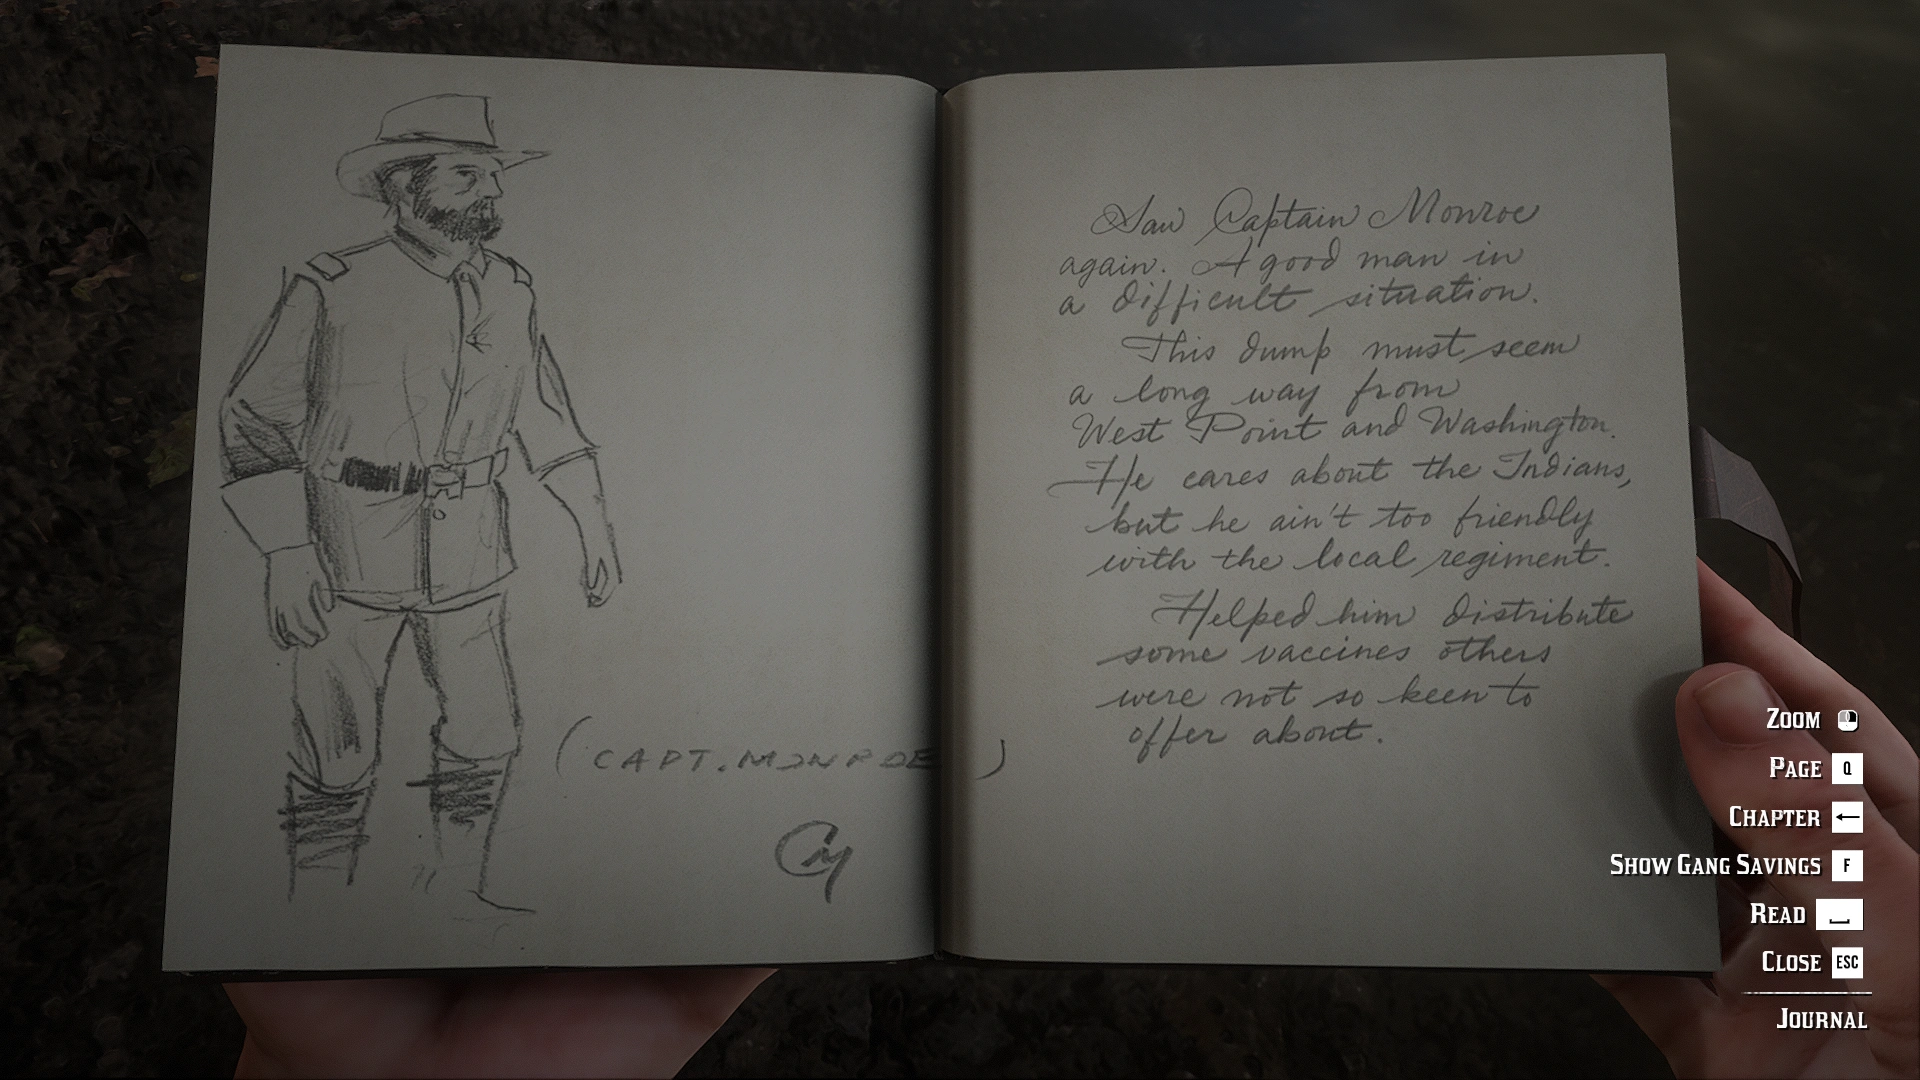 (CAPT. MONROE)
Saw Captain Monroe
again. A good man in
a difficult situation.
This dump must seem
a long way from
West Point and Washington.
He cares about the Indians,
but he ain't too friendly
with the local regiment.
Helped him distribute
some vaccines others
were not so keen to
offer about.
ZOOM
PAGE Q
CHAPTER ←
SHOW GANG SAVINGS F
READ
CLOSE ESC
JOURNAL